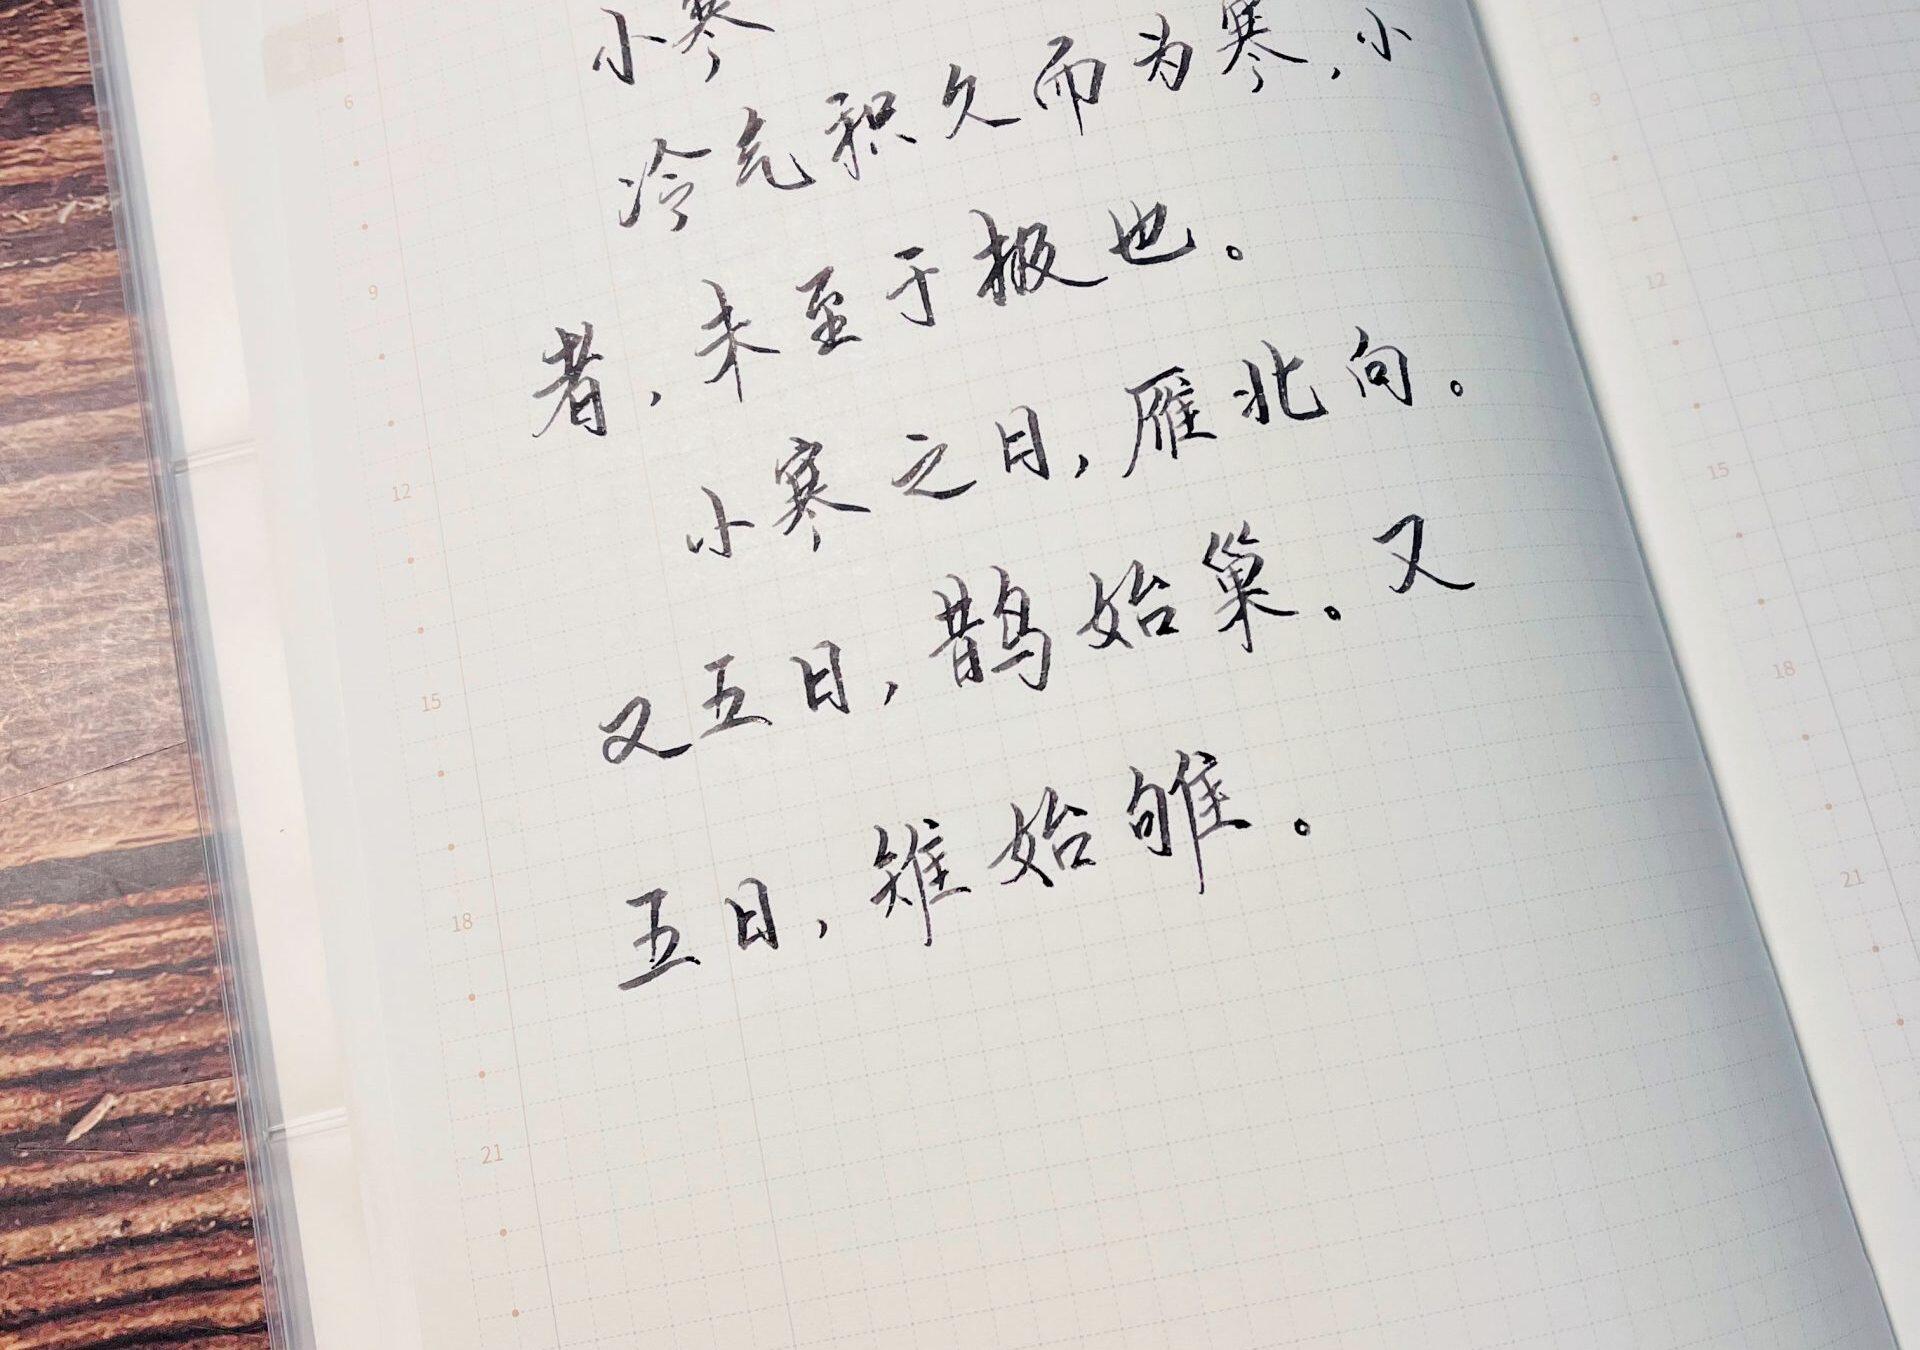 小寒
冷气积久而为寒，小
者，未至于极也。
小寒之日，雁北向。
又五日，鹊始巢。又
五日，雉始雊。
6
9
12
15
18
21
9
12
15
18
21